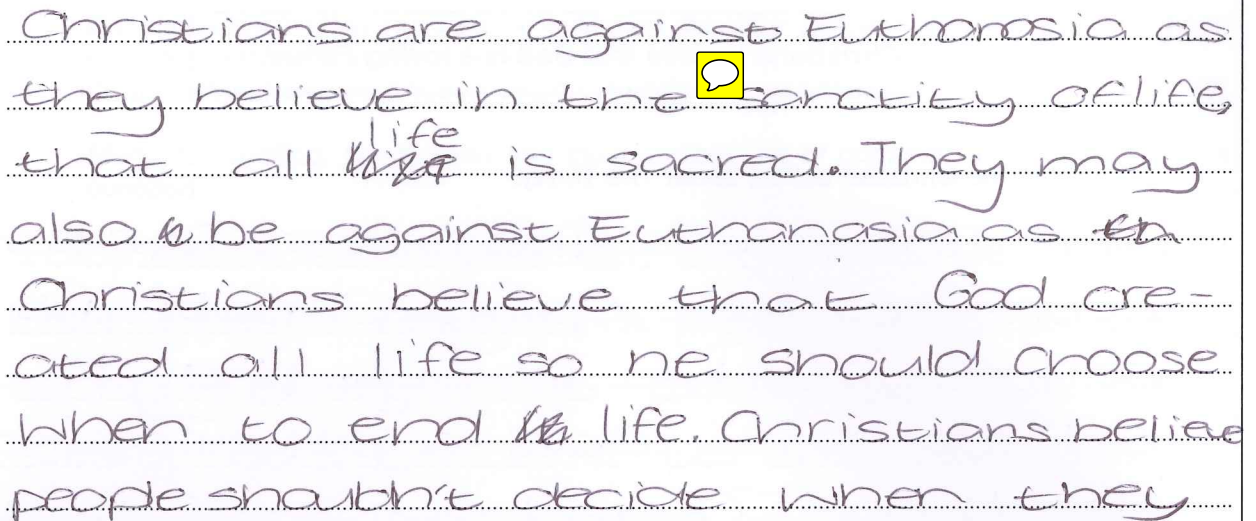 Christians are against Euthanasia as
they believe in the sanctity of life,
that all life is sacred. They may
also be against Euthanasia as
Christians believe that God cre-
ated all life so he should choose
when to end life. Christians believe
people shouldn't decide when they